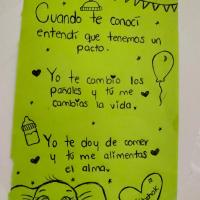 Cuando te conocí
entendí que tenemos un
pacto.
Yo te cambio los
pañales y tú me
cambias la vida.
Yo te doy de comer
y tú me alimentas
el alma.